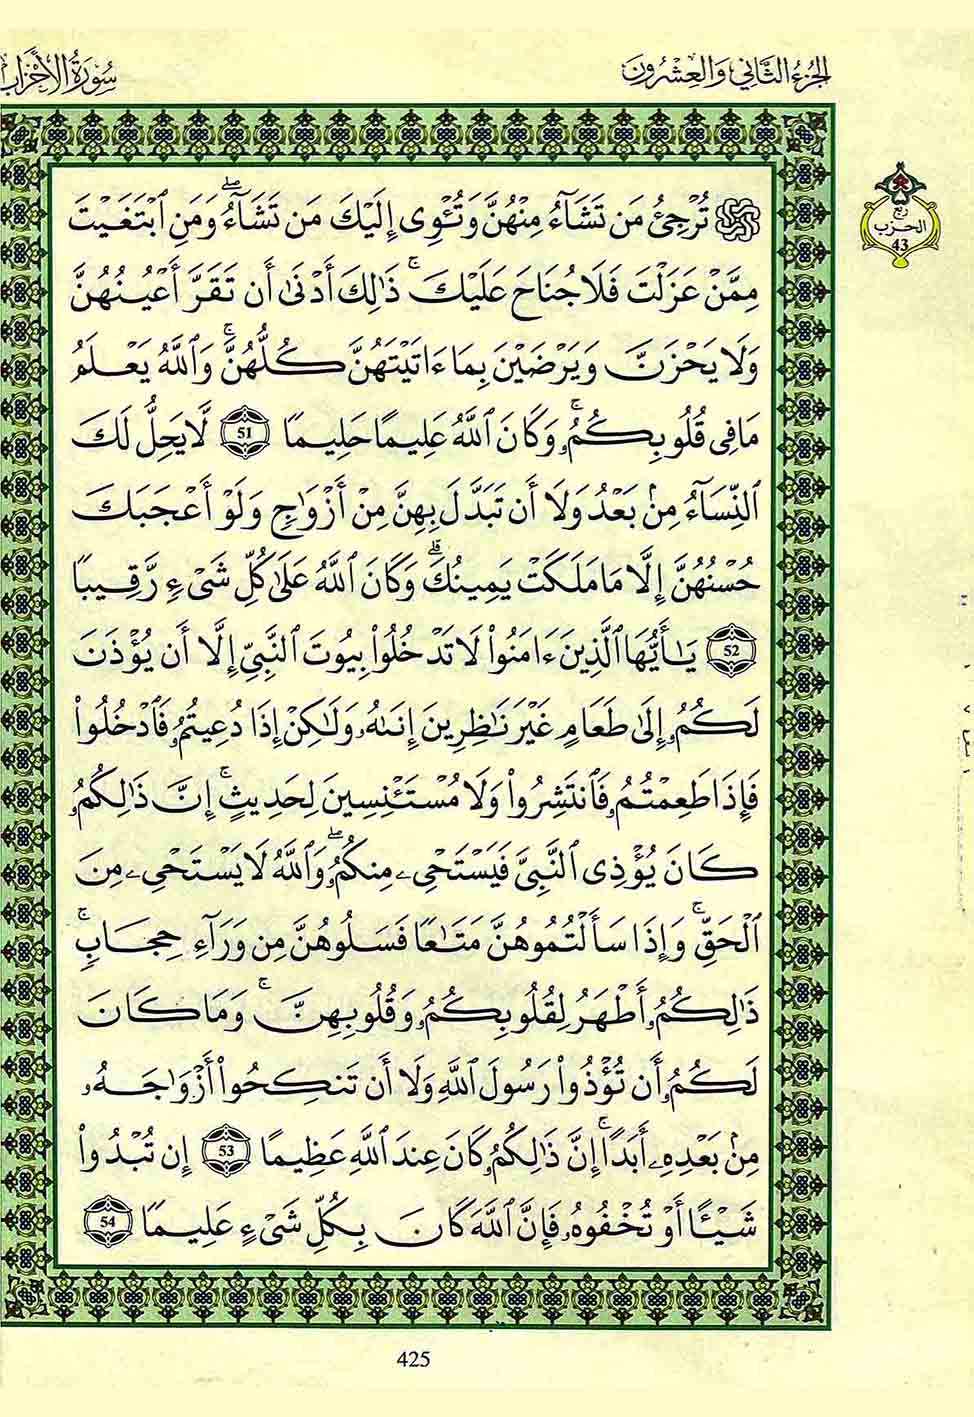 الجُزءُ الثَّانِي وَالعِشْرُونَ
سُورَةُ الأَحْزَابِ
ربع
الحزب
43
۞ تُرْجِئُ مَن تَشَآءُ مِنْهُنَّ وَتُـْٔوِى إِلَيْكَ مَن تَشَآءُ ۖ وَمَنِ ٱبْتَغَيْتَ
مِمَّنْ عَزَلْتَ فَلَا جُنَاحَ عَلَيْكَ ۚ ذَٰلِكَ أَدْنَىٰ أَن تَقَرَّ أَعْيُنُهُنَّ
وَلَا يَحْزَنَّ وَيَرْضَيْنَ بِمَا ءَاتَيْتَهُنَّ كُلُّهُنَّ ۚ وَٱللَّهُ يَعْلَمُ
مَا فِى قُلُوبِكُمُۥ ۚ وَكَانَ ٱللَّهُ عَلِيمًا حَلِيمًا 51 لَّا يَحِلُّ لَكَ
ٱلنِّسَآءُ مِنۢ بَعْدُ وَلَا أَن تَبَدَّلَ بِهِنَّ مِنْ أَزْوَٰجٍ وَلَوْ أَعْجَبَكَ
حُسْنُهُنَّ إِلَّا مَا مَلَكَتْ يَمِينُكَ ۗ وَكَانَ ٱللَّهُ عَلَىٰ كُلِّ شَىْءٍ رَّقِيبًا
52 يَـٰأَيُّهَا ٱلَّذِينَ ءَامَنُوا۟ لَا تَدْخُلُوا۟ بِيُوتَ ٱلنَّبِىِّ إِلَّا أَن يُؤْذَنَ
لَكُمُۥ إِلَىٰ طَعَامٍ غَيْرَ نَـٰظِرِينَ إِنَىٰهُۥ وَلَـٰكِنْ إِذَا دُعِيتُمُۥ فَٱدْخُلُوا۟
فَإِذَا طَعِمْتُمُۥ فَٱنتَشِرُوا۟ وَلَا مُسْتَـْٔنِسِينَ لِحَدِيثٍ ۚ إِنَّ ذَٰلِكُمُۥ
كَانَ يُؤْذِى ٱلنَّبِىَّ فَيَسْتَحْىِۦ مِنكُمُۥ ۖ وَٱللَّهُ لَا يَسْتَحْىِۦ مِنَ
ٱلْحَقِّ ۚ وَإِذَا سَأَلْتُمُوهُنَّ مَتَـٰعًا فَسَلُوهُنَّ مِن وَرَآءِ حِجَابٍ ۚ
ذَٰلِكُمُۥ أَطْهَرُ لِقُلُوبِكُمُۥ وَقُلُوبِهِنَّ ۚ وَمَا كَانَ
لَكُمُۥ أَن تُؤْذُوا۟ رَسُولَ ٱللَّهِ وَلَا أَن تَنكِحُوا۟ أَزْوَٰجَهُۥ
مِنۢ بَعْدِهِۦ أَبَدًا ۚ إِنَّ ذَٰلِكُمُۥ كَانَ عِندَ ٱللَّهِ عَظِيمًا 53 إِن تُبْدُوا۟
شَيْـًٔا أَوْ تُخْفُوهُۥ فَإِنَّ ٱللَّهَ كَانَ بِكُلِّ شَىْءٍ عَلِيمًا 54
425